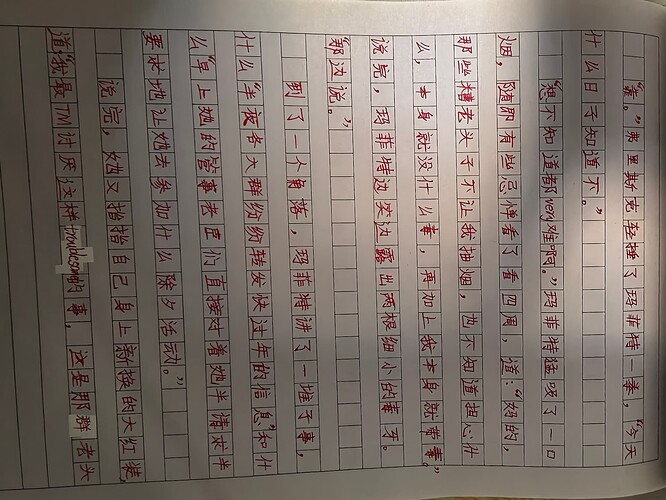 "靠。"弗里斯克轻捶了玛菲特一拳，"今天
什么日子知道不。"
"想不知道都very难啊。"玛菲特猛吸了一口
烟，随即有些忌惮看了看四周，道："好的，
那些糟老头子不让我抽烟，也不知道担心什
么，本身就没什么事，再加上我本身就带毒。"
说完，玛菲特边笑边露出两根细小的毒牙。
"那边说。"
到了一个角落，玛菲特讲了一堆子事，
什么"半夜各大群纷纷转发快过年的信息"和什
么"早上她的管事老臣们直接对着她半请求半
要求地让她去参加什么除夕活动。"
说完，她又指指自己身上新换的大红装，
道"我最TM讨厌这样troublesome的事，这是那群老头